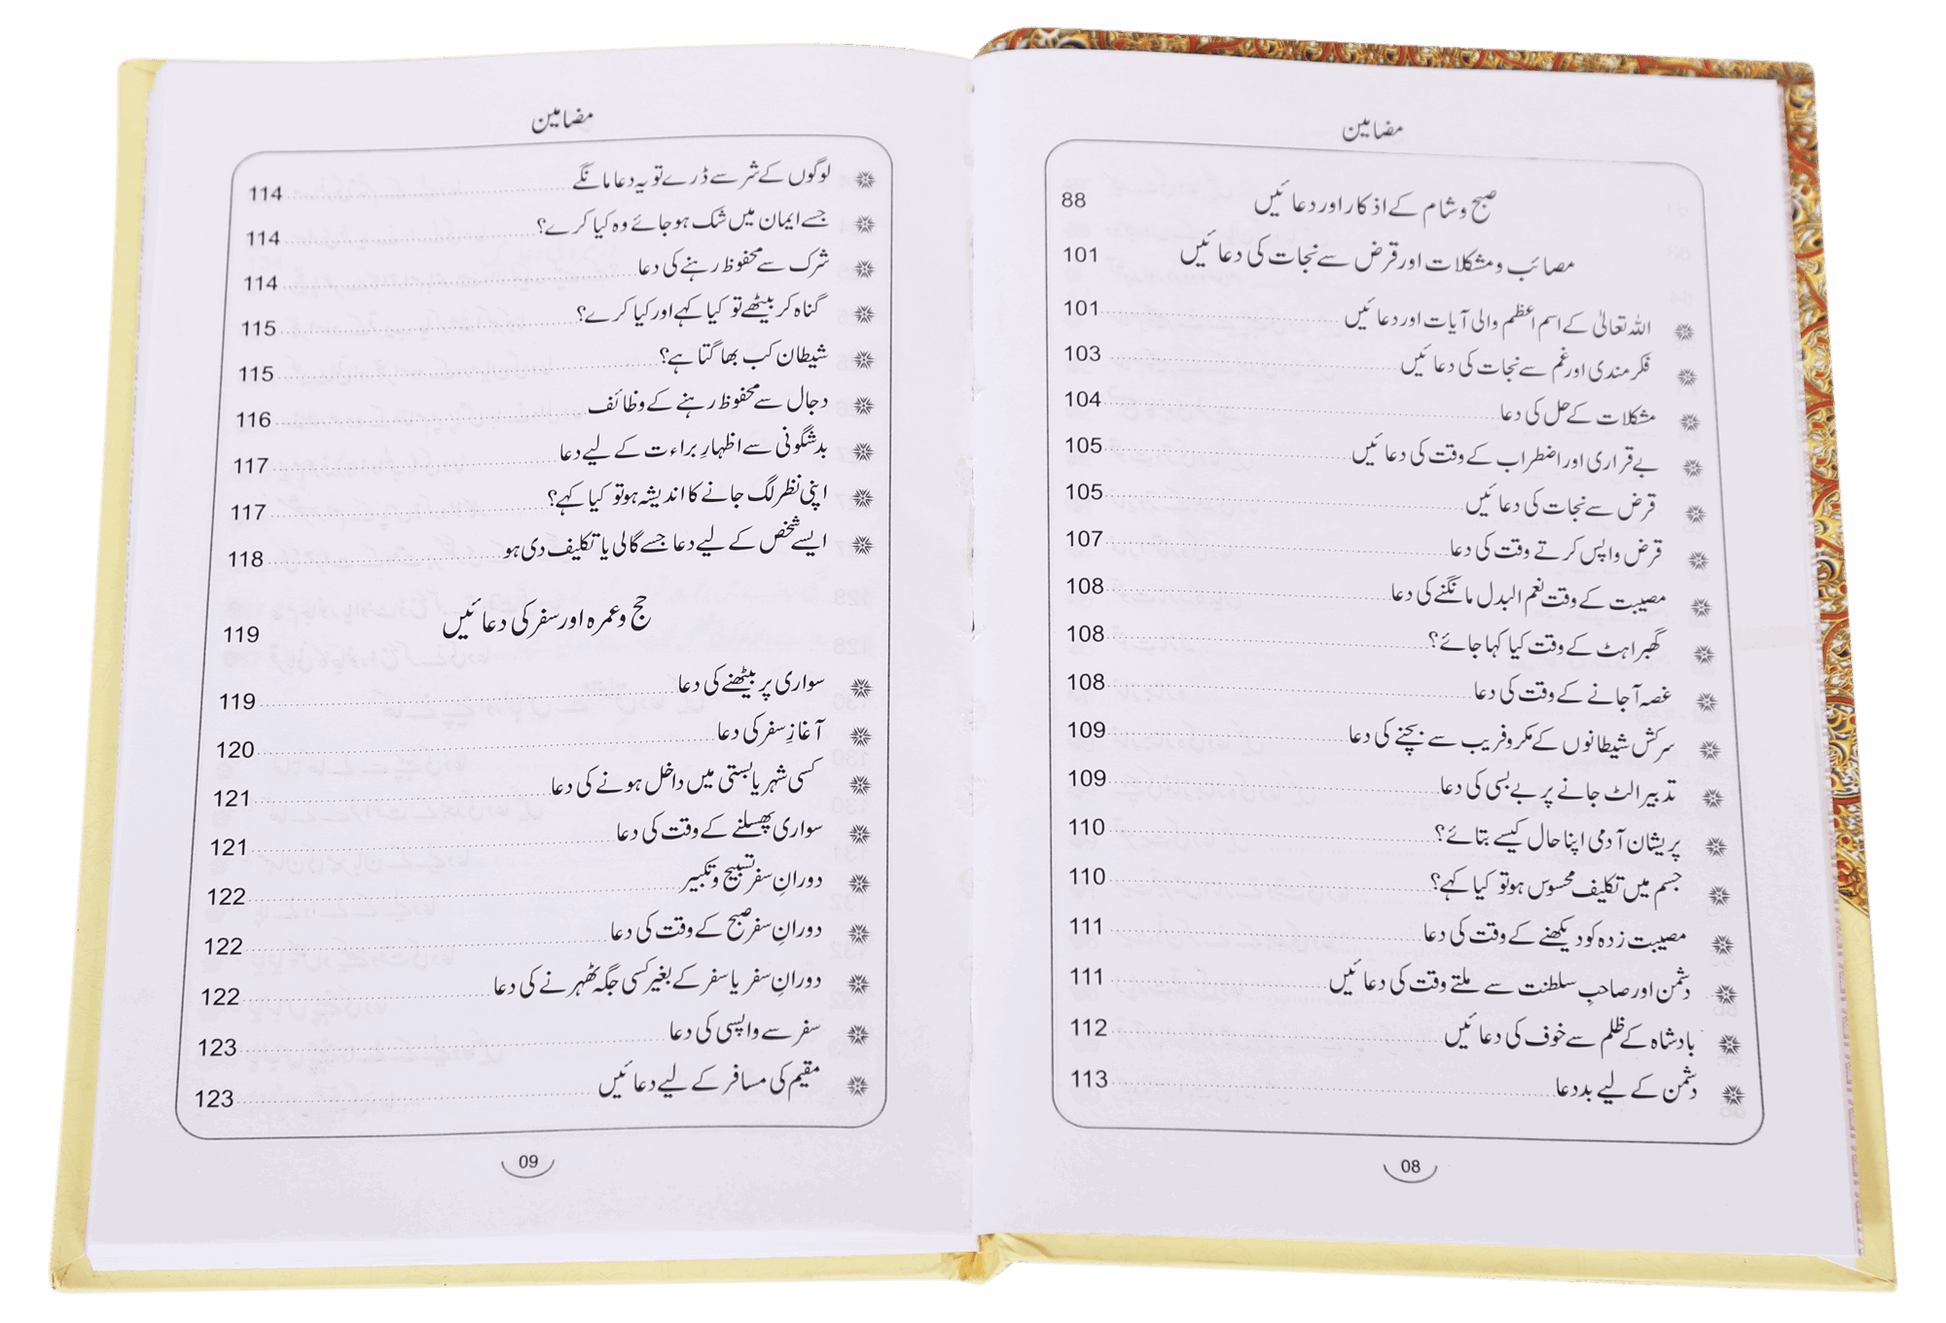 مضامین
صبح و شام کے اذکار اور دعائیں 88
مصائب و مشکلات اور قرض سے نجات کی دعائیں 101
اللہ تعالیٰ کے اسم اعظم والی آیات اور دعائیں 101
فکر مندی اور غم سے نجات کی دعائیں 103
مشکلات کے حل کی دعا 104
بے قراری اور اضطراب کے وقت کی دعائیں 105
قرض سے نجات کی دعائیں 105
قرض واپس کرتے وقت کی دعا 107
مصیبت کے وقت نعم البدل مانگنے کی دعا 108
گھبراہٹ کے وقت کیا کہا جائے؟ 108
غصہ آ جانے کے وقت کی دعا 108
سرکش شیطانوں کے مکر و فریب سے بچنے کی دعا 109
تدبیر الٹ جانے پر بے بسی کی دعا 109
پریشان آدمی اپنا حال کیسے بتائے؟ 110
جسم میں تکلیف محسوس ہو تو کیا کہے؟ 110
مصیبت زدہ کو دیکھنے کے وقت کی دعا 111
دشمن اور صاحبِ سلطنت سے ملتے وقت کی دعائیں 111
بادشاہ کے ظلم سے خوف کی دعائیں 112
دشمن کے لیے بددعا 113
08
مضامین
لوگوں کے شر سے ڈرے تو یہ دعا مانگے 114
جسے ایمان میں شک ہو جائے وہ کیا کرے؟ 114
شرک سے محفوظ رہنے کی دعا 114
گناہ کر بیٹھے تو کیا کہے اور کیا کرے؟ 115
شیطان کب بھاگتا ہے؟ 115
دجال سے محفوظ رہنے کے وظائف 116
بدشگونی سے اظہارِ براءت کے لیے دعا 117
اپنی نظر لگ جانے کا اندیشہ ہو تو کیا کہے؟ 117
ایسے شخص کے لیے دعا جسے گالی یا تکلیف دی ہو 118
حج و عمرہ اور سفر کی دعائیں 119
سواری پر بیٹھنے کی دعا 119
آغازِ سفر کی دعا 120
کسی شہر یا بستی میں داخل ہونے کی دعا 121
سواری پھسلنے کے وقت کی دعا 121
دورانِ سفر تسبیح و تکبیر 122
دورانِ سفر صبح کے وقت کی دعا 122
دورانِ سفر یا سفر کے بغیر کسی جگہ ٹھہرنے کی دعا 122
سفر سے واپسی کی دعا 123
مقیم کی مسافر کے لیے دعائیں 123
09